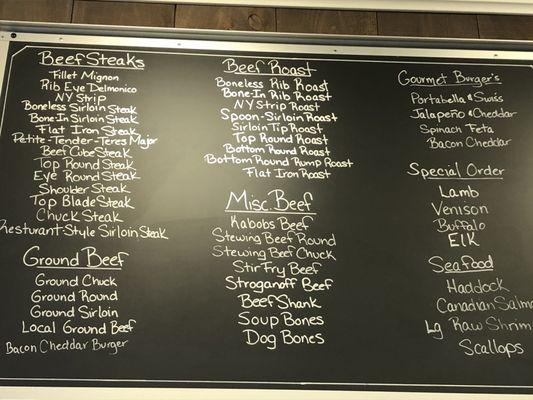 Beef Steaks
Fillet Mignon
Rib Eye Delmonico
NY Strip
Boneless Sirloin Steak
Bone-In Sirloin Steak
Flat Iron Steak
Petite-Tender-Teres Major
Beef Cube Steak
Top Round Steak
Eye Round Steak
Shoulder Steak
Top Blade Steak
Chuck Steak
Resturant-Style Sirloin Steak
Ground Beef
Ground Chuck
Ground Round
Ground Sirloin
Local Ground Beef
Bacon Cheddar Burger
Beef Roast
Boneless Rib Roast
Bone-In Rib Roast
NY Strip Roast
Spoon-Sirloin Roast
Sirloin Tip Roast
Top Round Roast
Bottom Round Roast
Bottom Round Rump Roast
Flat Iron Roast
Misc. Beef
Kabobs Beef
Stewing Beef Round
Stewing Beef Chuck
Stir Fry Beef
Stroganoff Beef
Beef Shank
Soup Bones
Dog Bones
Gourmet Burger's
Portabella & Swiss
Jalapeño & Cheddar
Spinach Feta
Bacon Cheddar
Special Order
Lamb
Venison
Buffalo
Elk
Seafood
Haddock
Canadian Salmo
Lg Raw Shrim
Scallops